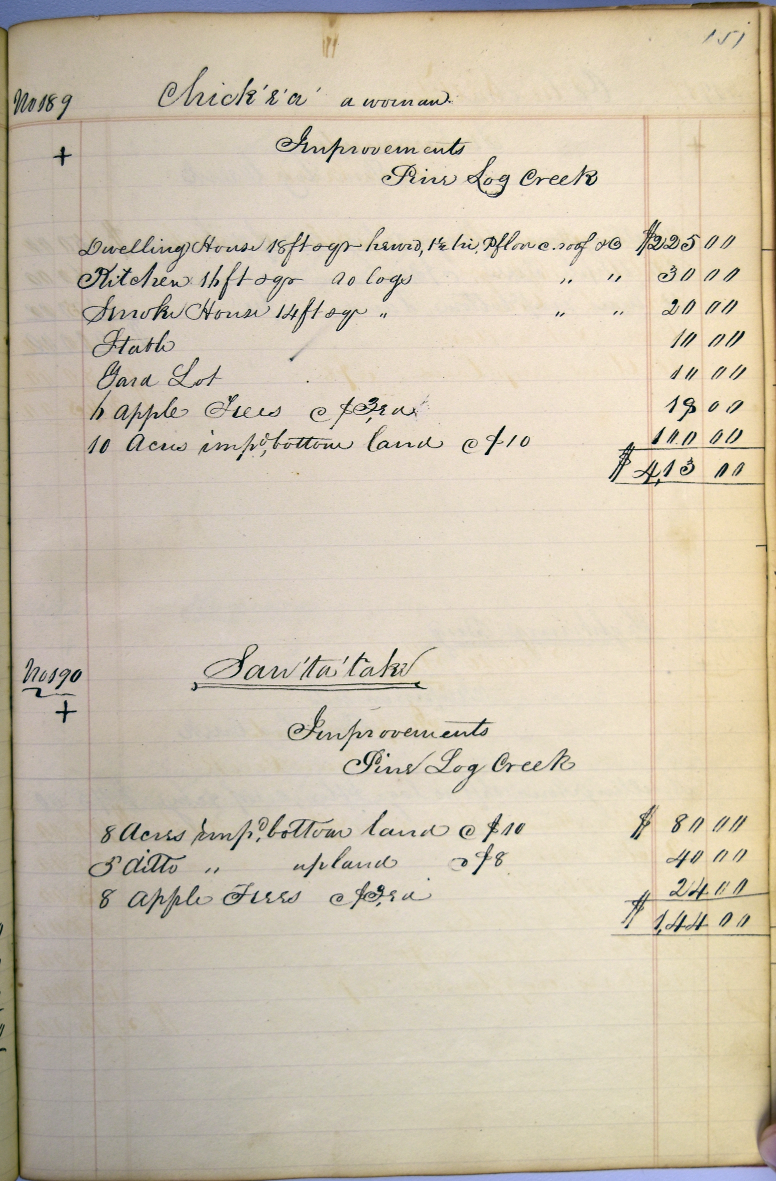 151
No 189 Chick'e'a' a woman.
+ Improvements
Pine Log Creek
Dwelling House 18ft sqr hewed, 1½ hi, Pfloor c. roof &c $225 00
Kitchen 16ft sqr 20 logs " " 30 00
Smoke House 14ft sqr " " " 20 00
Stable 10 00
Gard Lot 10 00
6 apple Trees @ $3, ea 18 00
10 Acres imp.d, bottom land @ $10 100 00
$ 413 00
No 190 San'ta'take
+ Improvements
Pine Log Creek
8 Acres imp.d, bottom land @ $10 $ 80 00
5 ditto " upland @ $8 40 00
8 apple Trees @ $3, ea 24 00
$ 144 00